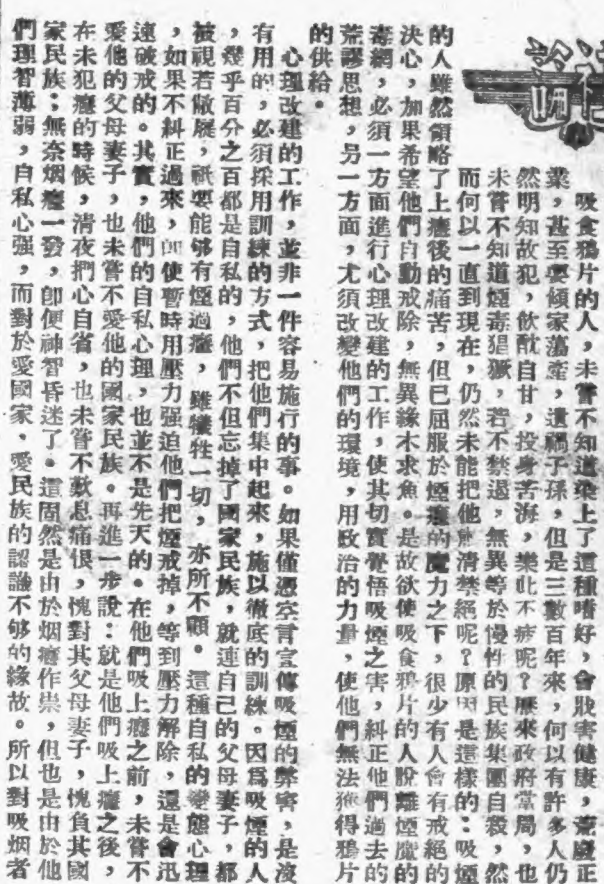 社
論
吸食鴉片的人，未嘗不知道染上了這種嗜好，會戕害健康，荒廢正
業，甚至要傾家蕩產，遺禍子孫，但是三數百年來，何以有許多人仍
然明知故犯，飲酖自甘，投身苦海，樂此不疲呢？歷來政府當局，也
未嘗不知道煙毒猖獗，若不禁遏，無異等於慢性的民族集團自殺，然
而何以一直到現在，仍然未能把他肅清禁絕呢？原因是這樣的：吸煙
的人雖然領略了上癮後的痛苦，但已屈服於煙癮的魔力之下，很少有人會有戒絕的
決心，如果希望他們自動戒除，無異緣木求魚。是故欲使吸食鴉片的人脫離煙魔的
毒網，必須一方面進行心理改建的工作，使其切實覺悟吸煙之害，糾正他們過去的
荒謬思想，另一方面，尤須改變他們的環境，用政治的力量，使他們無法獲得鴉片
的供給。
心理改建的工作，並非一件容易施行的事。如果僅憑空言宣傳吸煙的弊害，是沒
有用的，必須採用訓練的方式，把他們集中起來，施以徹底的訓練。因爲吸煙的人
，幾乎百分之百都是自私的，他們不但忘掉了國家民族，就連自己的父母妻子，都
被視若敝屣，祇要能够有煙過癮，雖犧牲一切，亦所不顧。這種自私的變態心理
，如果不糾正過來，即使暫時用壓力强迫他們把煙戒掉，等到壓力解除，還是會迅
速破戒的。其實，他們的自私心理，也並不是先天的。在他們吸上癮之前，未嘗不
愛他的父母妻子，也未嘗不愛他的國家民族。再進一步說：就是他們吸上癮之後，
在未犯癮的時候，清夜捫心自省，也未嘗不歎息痛恨，愧對其父母妻子，愧負其國
家民族；無奈烟癮一發，卽便神智昏迷了。這固然是由於烟癮作祟，但也是由於他
們理智薄弱，自私心强，而對於愛國家、愛民族的認識不够的緣故。所以對吸烟者